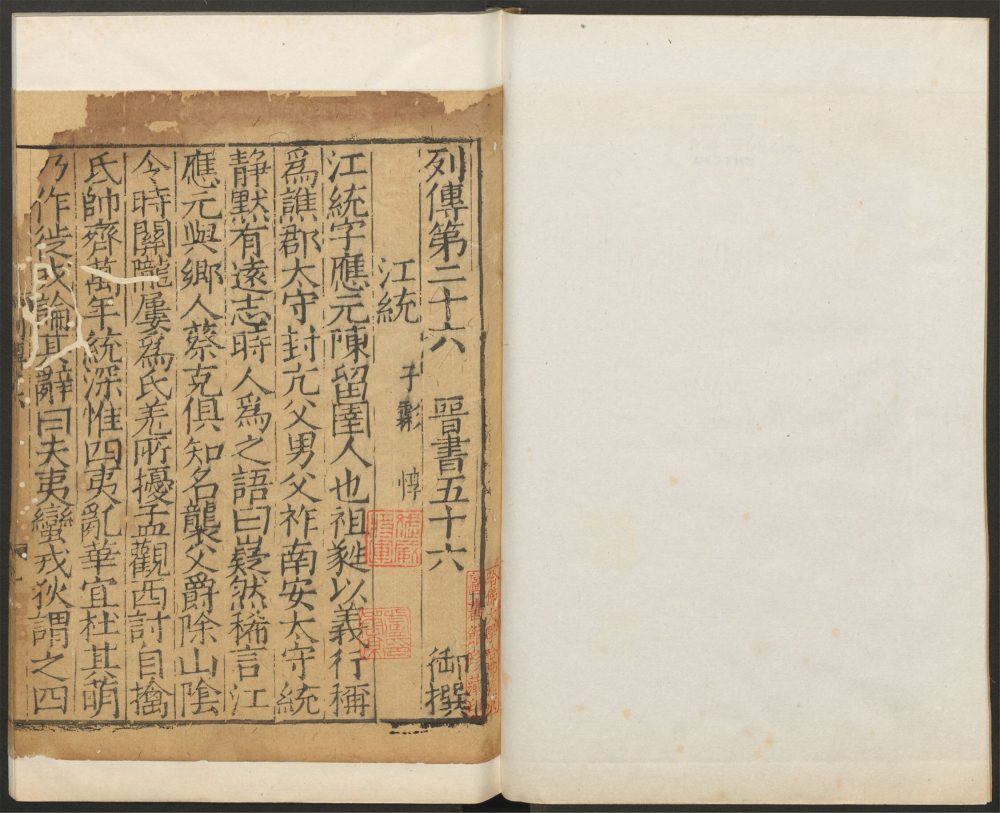 列傳第二十六 晉書五十六 御撰
江統 子虨 惇
江統字應元陳留圉人也祖蕤以義行稱
爲譙郡太守封亢父男父祚南安太守統
静默有遠志時人爲之語曰嶷然稀言江
應元與鄉人蔡克俱知名襲父爵除山陰
令時關隴屢爲氐羌所擾孟觀西討自擒
氐帥齊萬年統深惟四夷亂華宜杜其萌
乃作徙戎論其辭曰夫夷蠻戎狄謂之四